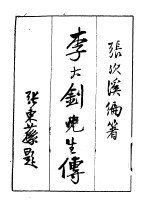 張次溪編著
李大釗先生傳
張東蓀題